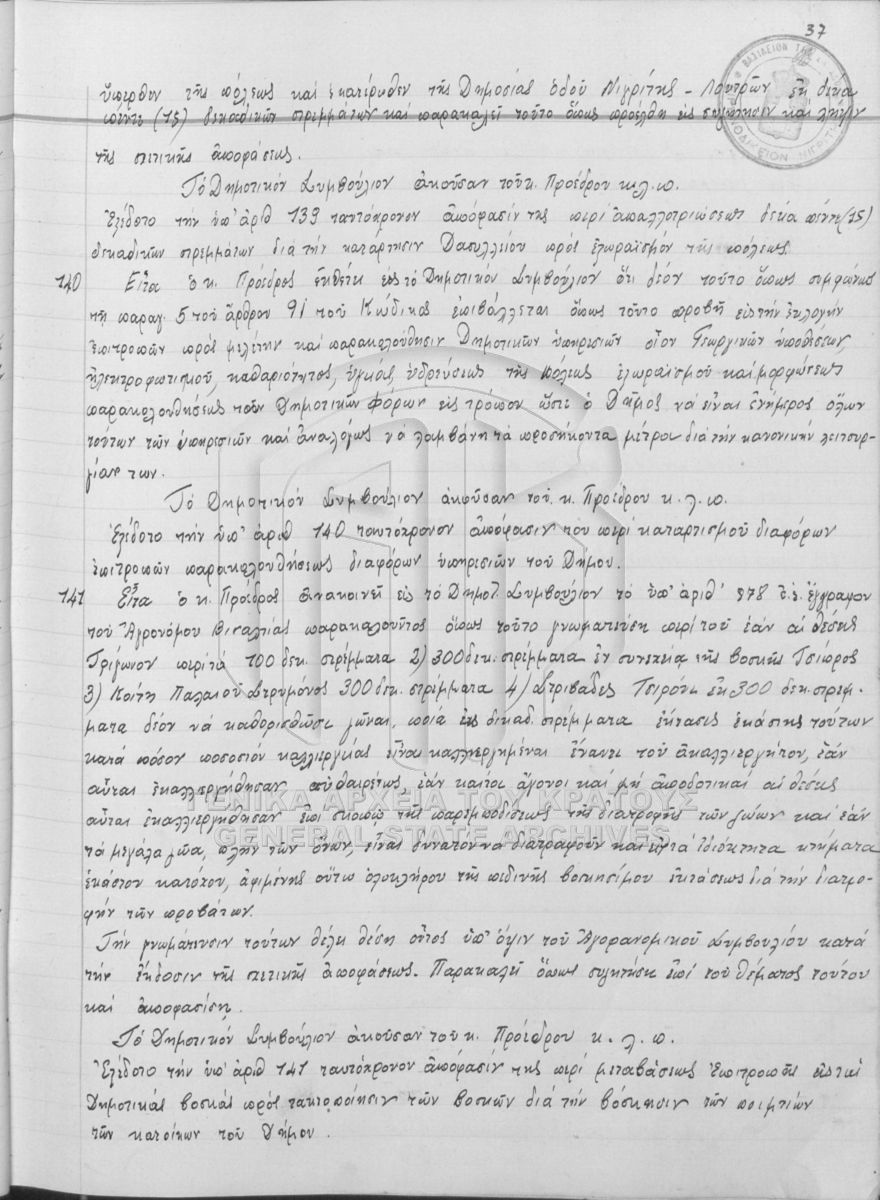 37
ὕπερθεν τῆς πόλεως καὶ ἑκατέρωθεν τῆς Δημοσίας ὁδοῦ Νιγρίτης - Λουτρῶν ἐκ δέκα
πέντε (15) δεκαδικῶν στρεμμάτων καὶ παρακαλεῖ τοῦτο ὅπως προέλθῃ εἰς συζήτησιν καὶ λῆψιν
τῆς σχετικῆς ἀποφάσεως.
Τὸ Δημοτικὸν Συμβούλιον ἀκοῦσαν τοῦ κ. Προέδρου κ.λ.π.
Ἐξέδοτο τὴν ὑπ' ἀριθ 139 ταυτόχρονον ἀπόφασίν της περὶ ἀπαλλοτριώσεως δέκα πέντε (15)
δεκαδικῶν στρεμμάτων διὰ τὴν κατάρτησιν Δασυλλείου πρὸς ἐξωραϊσμὸν τῆς πόλεως.
140 Εἶτα ὁ κ. Πρόεδρος ἐκθέτει εἰς τὸ Δημοτικὸν Συμβούλιον ὅτι δέον τοῦτο ὅπως συμφώνως
τῇ παραγ. 5 τοῦ ἄρθρου 91 τοῦ Κώδικος ἐπιβάλλεται ὅπως τοῦτο προβῇ εἰς τὴν ἐκλογὴν
ἐπιτροπῶν πρὸς μελέτην καὶ παρακολούθησιν Δημοτικῶν ὑπηρεσιῶν οἷον Γεωργικῶν ὑποθέσεων,
ἠλεκτροφωτισμοῦ, καθαριότητος, ὑγείας, ὑδρεύσεως τῆς πόλεως ἐξωραϊσμοῦ καὶ μορφώσεως
παρακολουθήσεως τῶν Δημοτικῶν φόρων εἰς τρόπον ὥστε ὁ Δῆμος νὰ εἶναι ἐνήμερος ὅλων
τούτων τῶν ὑπηρεσιῶν καὶ ἀναλόγως νὰ λαμβάνῃ τὰ προσήκοντα μέτρα διὰ τὴν κανονικὴν λειτουρ-
γίαν των.
Τὸ Δημοτικὸν Συμβούλιον ἀκοῦσαν τοῦ κ. Προέδρου κ.λ.π.
Ἐξέδοτο τὴν ὑπ' ἀριθ 140 ταυτόχρονον ἀπόφασίν του περὶ καταρτισμοῦ διαφόρων
ἐπιτροπῶν παρακολουθήσεως διαφόρων ὑπηρεσιῶν τοῦ Δήμου.
141 Εἶτα ὁ κ. Πρόεδρος ἀνακοινεῖ εἰς τὸ Δημοτ. Συμβούλιον τὸ ὑπ' ἀριθ' 578 ἔγγραφον
τοῦ Ἀγρονόμου Βισαλτίας παρακαλοῦντος ὅπως τοῦτο γνωματεύσῃ περὶ τοῦ ἐὰν αἱ θέσεις
Τρίγωνον περὶ τὰ 100 δεκ. στρέμματα 2) 300 δεκ. στρέμματα ἐν συνεχείᾳ τῆς βοσκῆς Τσιάρος
3) Κοίτη Παλαιοῦ Στρυμόνος 300 δεκ. στρέμματα 4) Στριβάδες Τσιρόνι ἐκ 300 δεκ. στρέμ-
ματα δέον νὰ καθορισθῶσι ζῶναι, ποία εἰς δεκαδ. στρέμματα ἔκτασις ἑκάστης τούτων
κατὰ πόσον ποσοστὸν καλλιεργείας εἶναι καλλιεργημέναι ἔναντι τοῦ ἀκαλλιεργήτου, ἐὰν
αὗται ἐκαλλιεργήθησαν αὐθαιρέτως, ἐὰν καίτοι ἄγονοι καὶ μὴ ἀποδοτικαὶ αἱ θέσεις
αὗται ἐκαλλιεργήθησαν ἐπὶ σκοπῷ τῆς παρεμποδίσεως τῆς διατροφῆς τῶν ζώων καὶ ἐὰν
τὰ μεγάλα ζῶα, πλὴν τῶν ὄνων, εἶναι δυνατὸν νὰ διατραφοῦν καὶ εἰς τὰ ἰδιόκτητα κτήματα
ἑκάστου κατόχου, ἀφιμένης οὕτω ὁλοκλήρου τῆς πεδινῆς βοσκησίμου ἐκτάσεως διὰ τὴν διατρο-
φὴν τῶν προβάτων.
Τὴν γνωμάτευσιν τούτων θέλει θέσῃ οὗτος ὑπ' ὄψιν τοῦ Ἀγορανομικοῦ Συμβουλίου κατὰ
τὴν ἔκδοσιν τῆς σχετικῆς ἀποφάσεως. Παρακαλεῖ ὅπως συζητήσῃ ἐπὶ τοῦ θέματος τούτου
καὶ ἀποφασίσῃ.
Τὸ Δημοτικὸν Συμβούλιον ἀκοῦσαν τοῦ κ. Προέδρου κ.λ.π.
Ἐξέδοτο τὴν ὑπ' ἀριθ 141 ταυτόχρονον ἀπόφασίν της περὶ μεταβάσεως ἐπιτροπῆς εἰς τὰς
Δημοτικὰς βοσκὰς πρὸς τακτοποίησιν τῶν βοσκῶν διὰ τὴν βόσκησιν τῶν ποιμνίων
τῶν κατοίκων τοῦ Δήμου.
ΓΕΝΙΚΑ ΑΡΧΕΙΑ ΤΟΥ ΚΡΑΤΟΥΣ
GENERAL STATE ARCHIVES